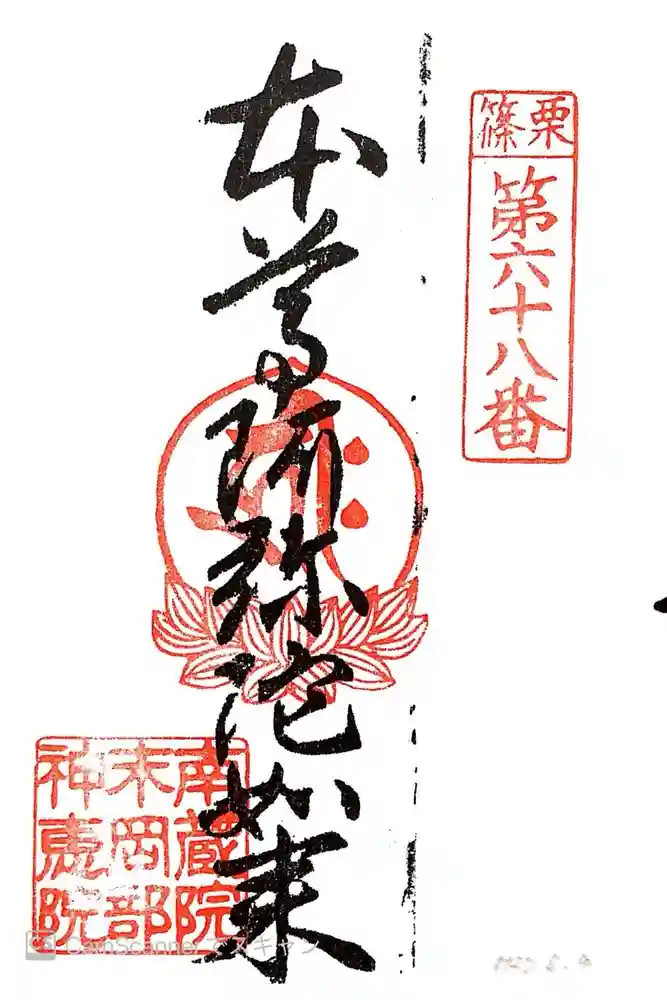 栗篠
第六十八番
本尊阿弥陀如来
南蔵院
本岡部
神恵院
CamScannerでスキャン